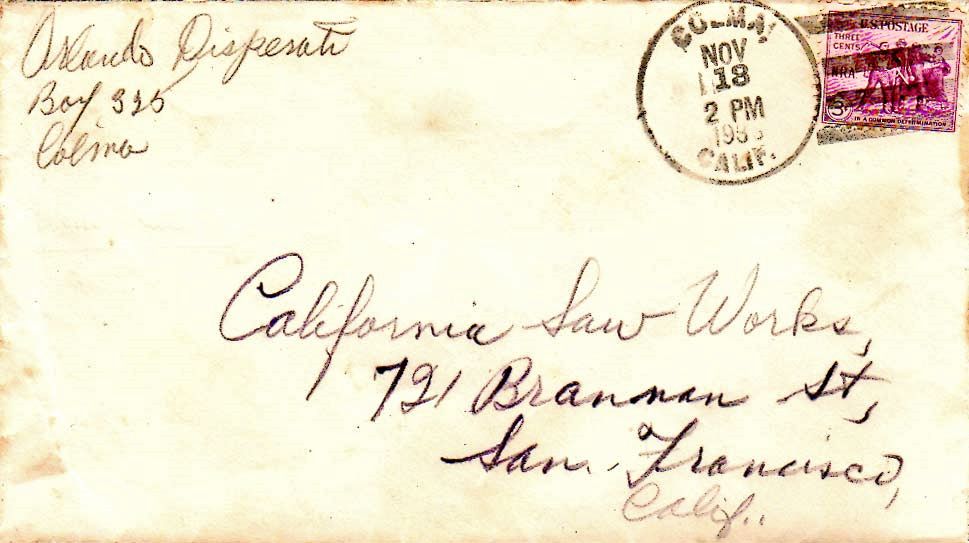 Orlando Disperati
Box 325
Colma
COLMA,
NOV
18
2 PM
193
CALIF.
U.S. POSTAGE
THREE
CENTS
NRA
3¢
IN A COMMON DETERMINATION
California Saw Works,
721 Brannan St,
San Francisco,
Calif..